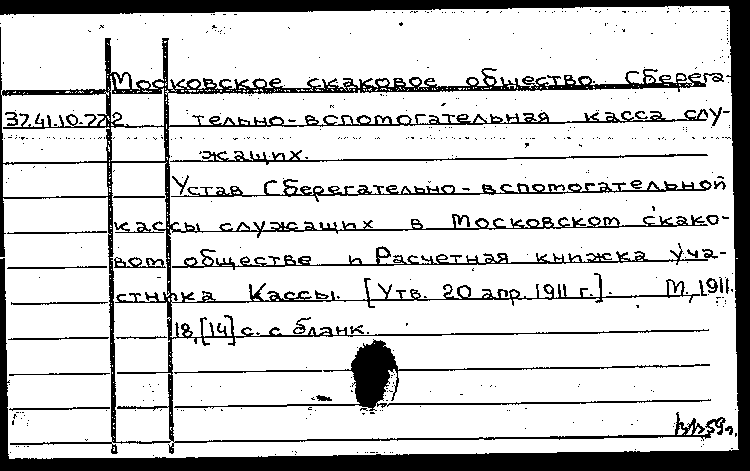 Московское скаковое общество. Сберега-
37.41.10.722. тельно-вспомогательная касса слу-
жащих.
Устав Сберегательно-вспомогательной
кассы служащих в Московском скако-
вом обществе и Расчетная книжка уча-
стника Кассы. [Утв. 20 апр. 1911 г.]. М., 1911.
18, [14] с. с бланк.